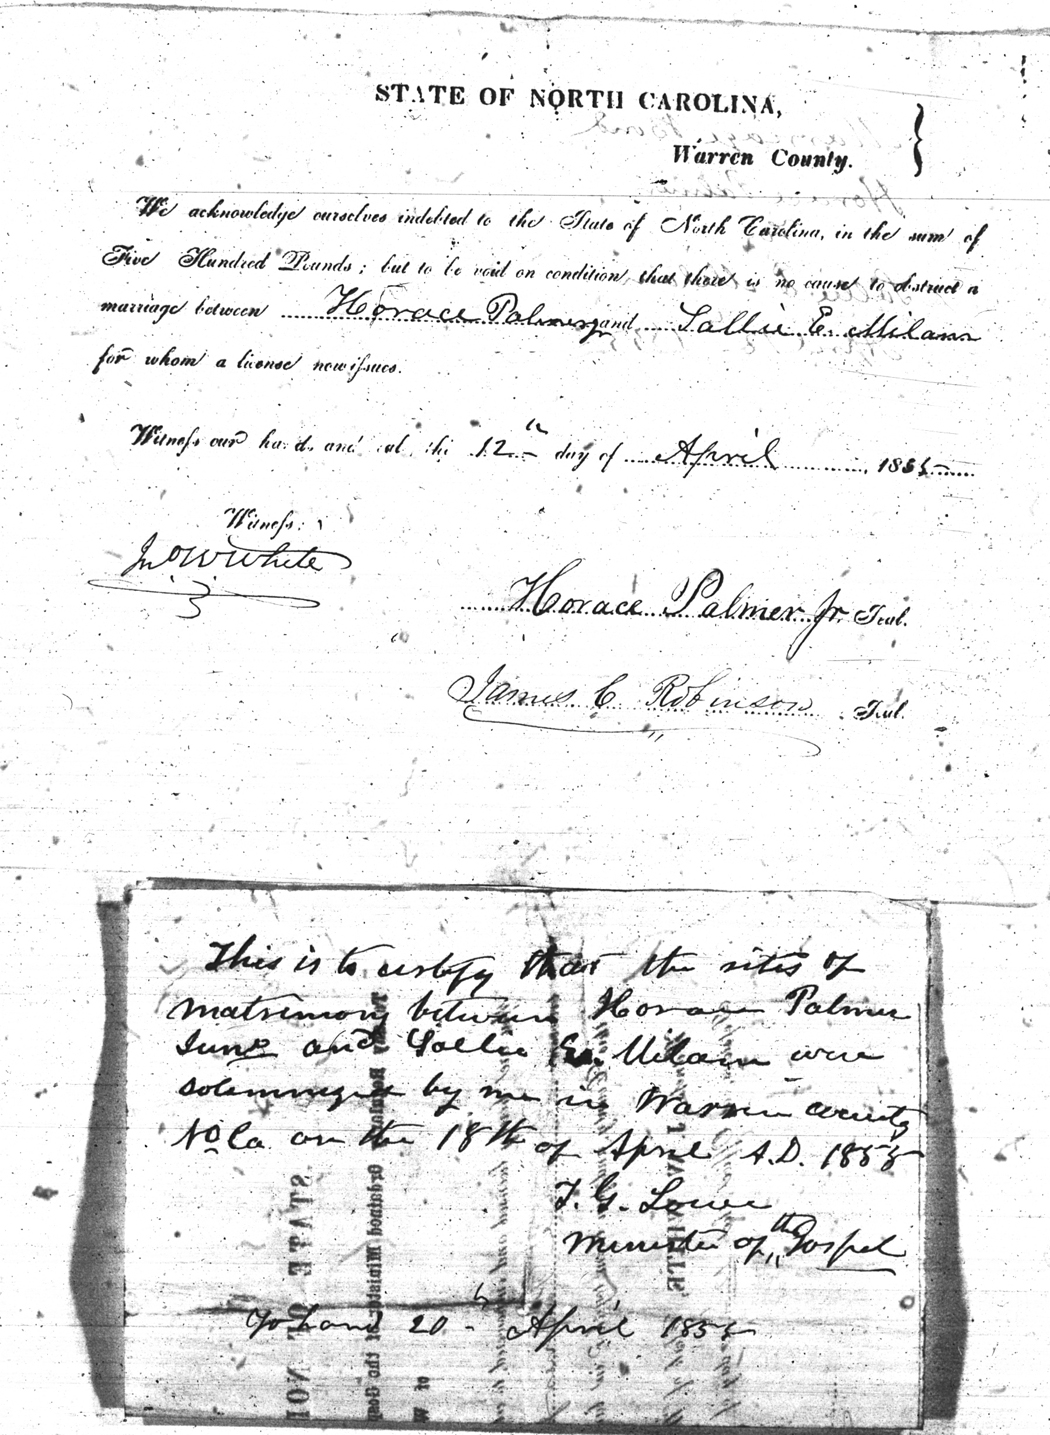 STATE OF NORTH CAROLINA,
Warren County.
We acknowledge ourselves indebted to the State of North Carolina, in the sum of
Five Hundred Pounds; but to be void on condition, that there is no cause to obstruct a
marriage between Horace Palmer Jr and Sallie E. Milam
for whom a license now issues.
Witness our hands and seal the 12th day of April, 1855
Witness:
Jno W White
Horace Palmer Jr. Seal.
James C Robinson Seal.
This is to certify that the rites of
matrimony between Horace Palmer
Junr and Sallie E. Milam were
solemnized by me in Warren county
No Ca on the 18th of April A.D. 1855
T. G. Lowe
Minister of the Gospel
To hand 20th April 1855
STATE O NOR
Ordained Minister of the Gosp
W of